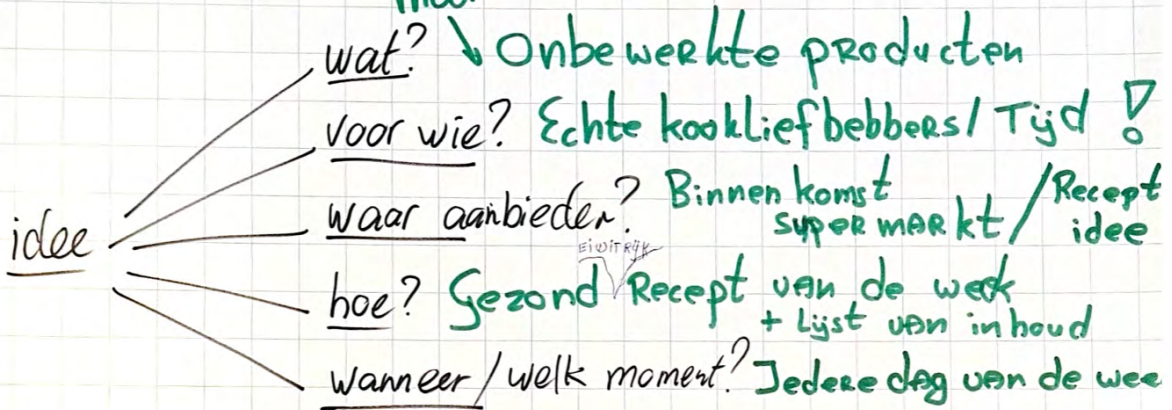 wat? ↓ Onbewerkte producten
voor wie? Echte kookliefhebbers / Tijd !
waar aanbieden? Binnenkomst supermarkt / Recept idee
idee
EiWiTRijK
hoe? Gezond Recept van de week
+ Lijst van inhoud
wanneer / welk moment? Iedere dag van de wee